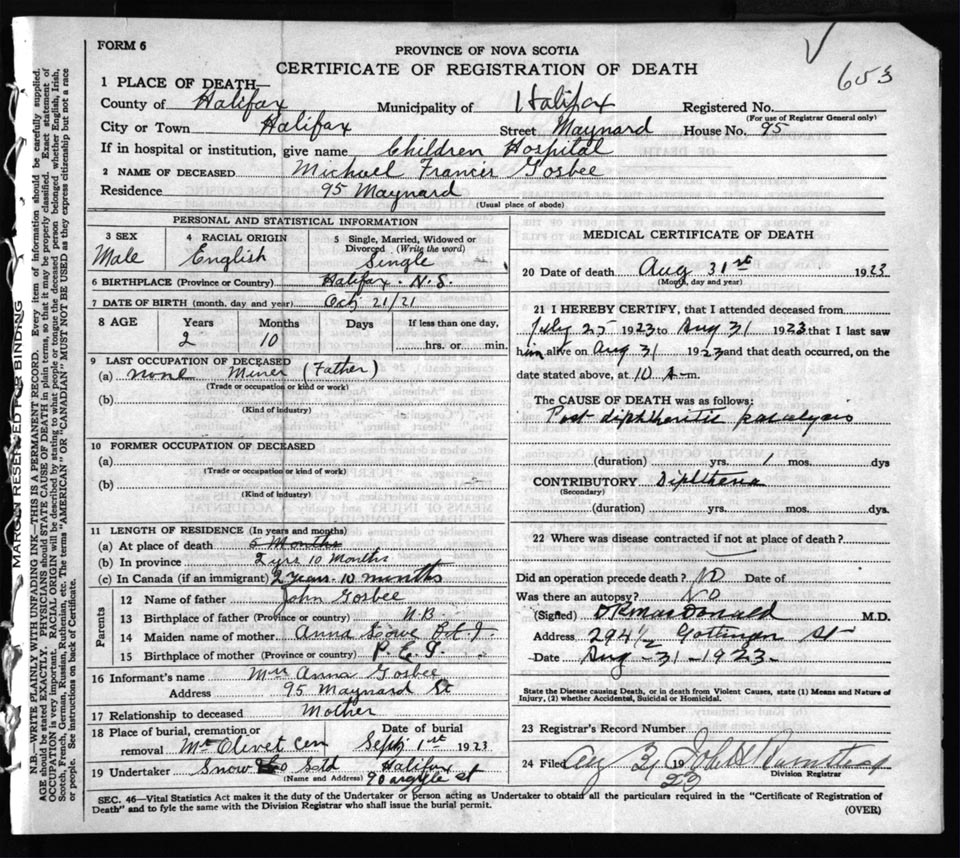 FORM 6
653
PROVINCE OF NOVA SCOTIA
CERTIFICATE OF REGISTRATION OF DEATH
1 PLACE OF DEATH—
County of Halifax Municipality of Halifax Registered No.
(For use of Registrar General only)
City or Town Halifax Street Maynard House No. 95
If in hospital or institution, give name Children Hospital
2 NAME OF DECEASED Michael Francis Gosbee
Residence 95 Maynard
(Usual place of abode)
PERSONAL AND STATISTICAL INFORMATION
3 SEX 4 RACIAL ORIGIN 5 Single, Married, Widowed or Divorced (Write the word)
Male English Single
6 BIRTHPLACE (Province or Country) Halifax - N.S.
7 DATE OF BIRTH (month, day and year) Oct 21/21
8 AGE Years Months Days If less than one day,
2 10 hrs. or min.
9 LAST OCCUPATION OF DECEASED
(a) none Miner (Father)
(Trade or occupation or kind or work)
(b)
(Kind of industry)
10 FORMER OCCUPATION OF DECEASED
(a)
(Trade or occupation or kind of work)
(b)
(Kind of industry)
11 LENGTH OF RESIDENCE (In years and months)
(a) At place of death 5 Months
(b) In province 2 yrs 10 Months
(c) In Canada (if an immigrant) 2 years - 10 months
Parents
12 Name of father John Gosbee
13 Birthplace of father (Province or country) N B
14 Maiden name of mother Anna
15 Birthplace of mother (Province or country) P.E.I.
16 Informant's name Mrs Anna Gosbee
Address 95 Maynard St
17 Relationship to deceased Mother
18 Place of burial, cremation or removal Mt Olivet Cem Date of burial Sept 1st 1923
19 Undertaker Snow & Co Ltd Halifax
(Name and Address) 90 Argyle St
MEDICAL CERTIFICATE OF DEATH
20 Date of death Aug 31st 1923
(Month, day and year)
21 I HEREBY CERTIFY, that I attended deceased from
July 25 1923 to Aug 31 1923 that I last saw
him alive on Aug 31 1923 and that death occurred, on the
date stated above, at 10 A-m.
The CAUSE OF DEATH was as follows:
Post diphtheritic paralysis
(duration) yrs. 1 mos. dys
CONTRIBUTORY Diphtheria
(Secondary)
(duration) yrs. mos. dys.
22 Where was disease contracted if not at place of death?
Did an operation precede death? NO Date of
Was there an autopsy? NO
(Signed) MacDonald M.D.
Address 294½ Gottingen St
Date Aug - 31 - 1923 -
State the Disease causing Death, or in death from Violent Causes, state (1) Means and Nature of
Injury, (2) whether Accidental, Suicidal or Homicidal.
23 Registrar's Record Number
24 Filed Aug 31 1923 John
Division Registrar
SEC. 46—Vital Statistics Act makes it the duty of the Undertaker or person acting as Undertaker to obtain all the particulars required in the "Certificate of Registration of
Death" and to fyle the same with the Division Registrar who shall issue the burial permit.
(OVER)
MARGIN RESERVED FOR BINDING
N.B.—WRITE PLAINLY WITH UNFADING INK—THIS IS A PERMANENT RECORD. Every item of information should be carefully supplied.
AGE should be stated EXACTLY. PHYSICIANS should STATE CAUSE OF DEATH in plain terms, so that it may be properly classified. Exact statement of
OCCUPATION is very important. RACIAL ORIGIN will be described by stating to what people or tongue the deceased person belonged whether English, Irish,
Scotch, French, German, Russian, Ruthenian, etc. The terms "AMERICAN" OR "CANADIAN" MUST NOT BE USED as they express citizenship but not a race
or people. See instructions on back of Certificate.